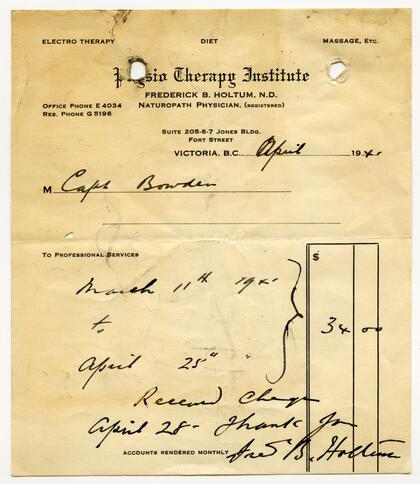 ELECTRO THERAPY DIET MASSAGE, ETC.
Physio Therapy Institute
FREDERICK B. HOLTUM, N.D.
OFFICE PHONE E 4034 NATUROPATH PHYSICIAN, (REGISTERED)
RES. PHONE G 5196
SUITE 205-6-7 JONES BLDG.
FORT STREET
VICTORIA, B.C., April 1941
M Capt Bowden
TO PROFESSIONAL SERVICES $
March 11th 1941
to 34 00
April 25" "
Received Cheque
April 28 - Thank You
ACCOUNTS RENDERED MONTHLY Fred B. Holtum